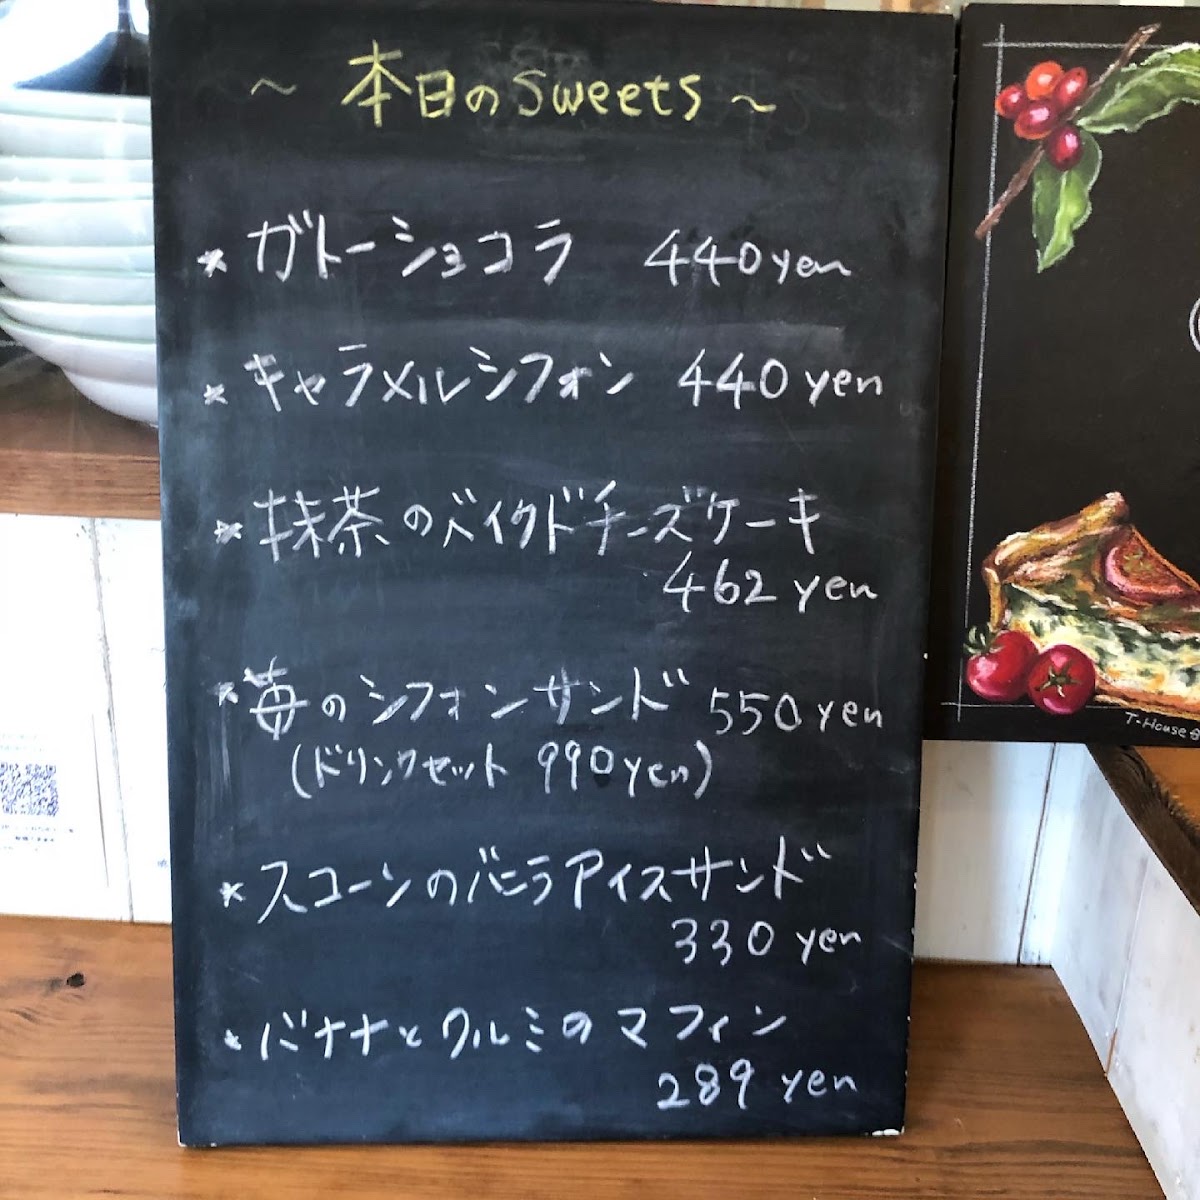 ～ 本日のsweets ～
* ガトーショコラ 440yen
* キャラメルシフォン 440yen
* 抹茶のベイクドチーズケーキ
462 yen
* 苺のシフォンサンド 550yen
(ドリンクセット 990yen)
* スコーンのバニラアイスサンド
330 yen
* バナナとクルミのマフィン
289 yen
T-House